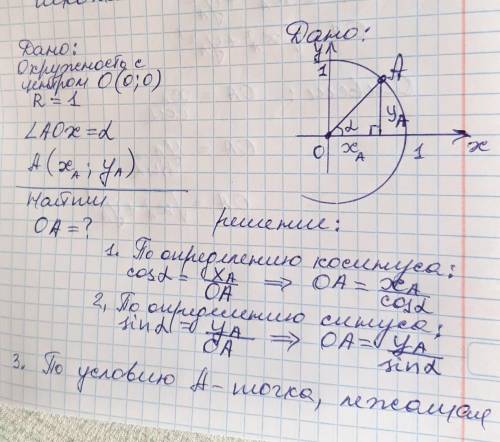 Дано:
Окружность с
центром O(0;0)
R = 1
∠AOx = α
A (x_A ; y_A)
Найти
OA = ?
Дано:
y
1
A
α
y_A
O
x_A
1
x
решение:
1. По определению косинуса:
cosα = x_A/OA ⇒ OA = x_A/cosα
2, По определению синуса;
sinα = y_A/OA ⇒ OA = y_A/sinα
3. По условию A - точка, лежащая